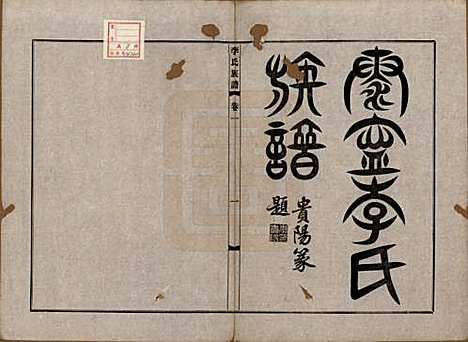 寧李氏
族譜
貴陽篆
題
李氏族譜 卷一